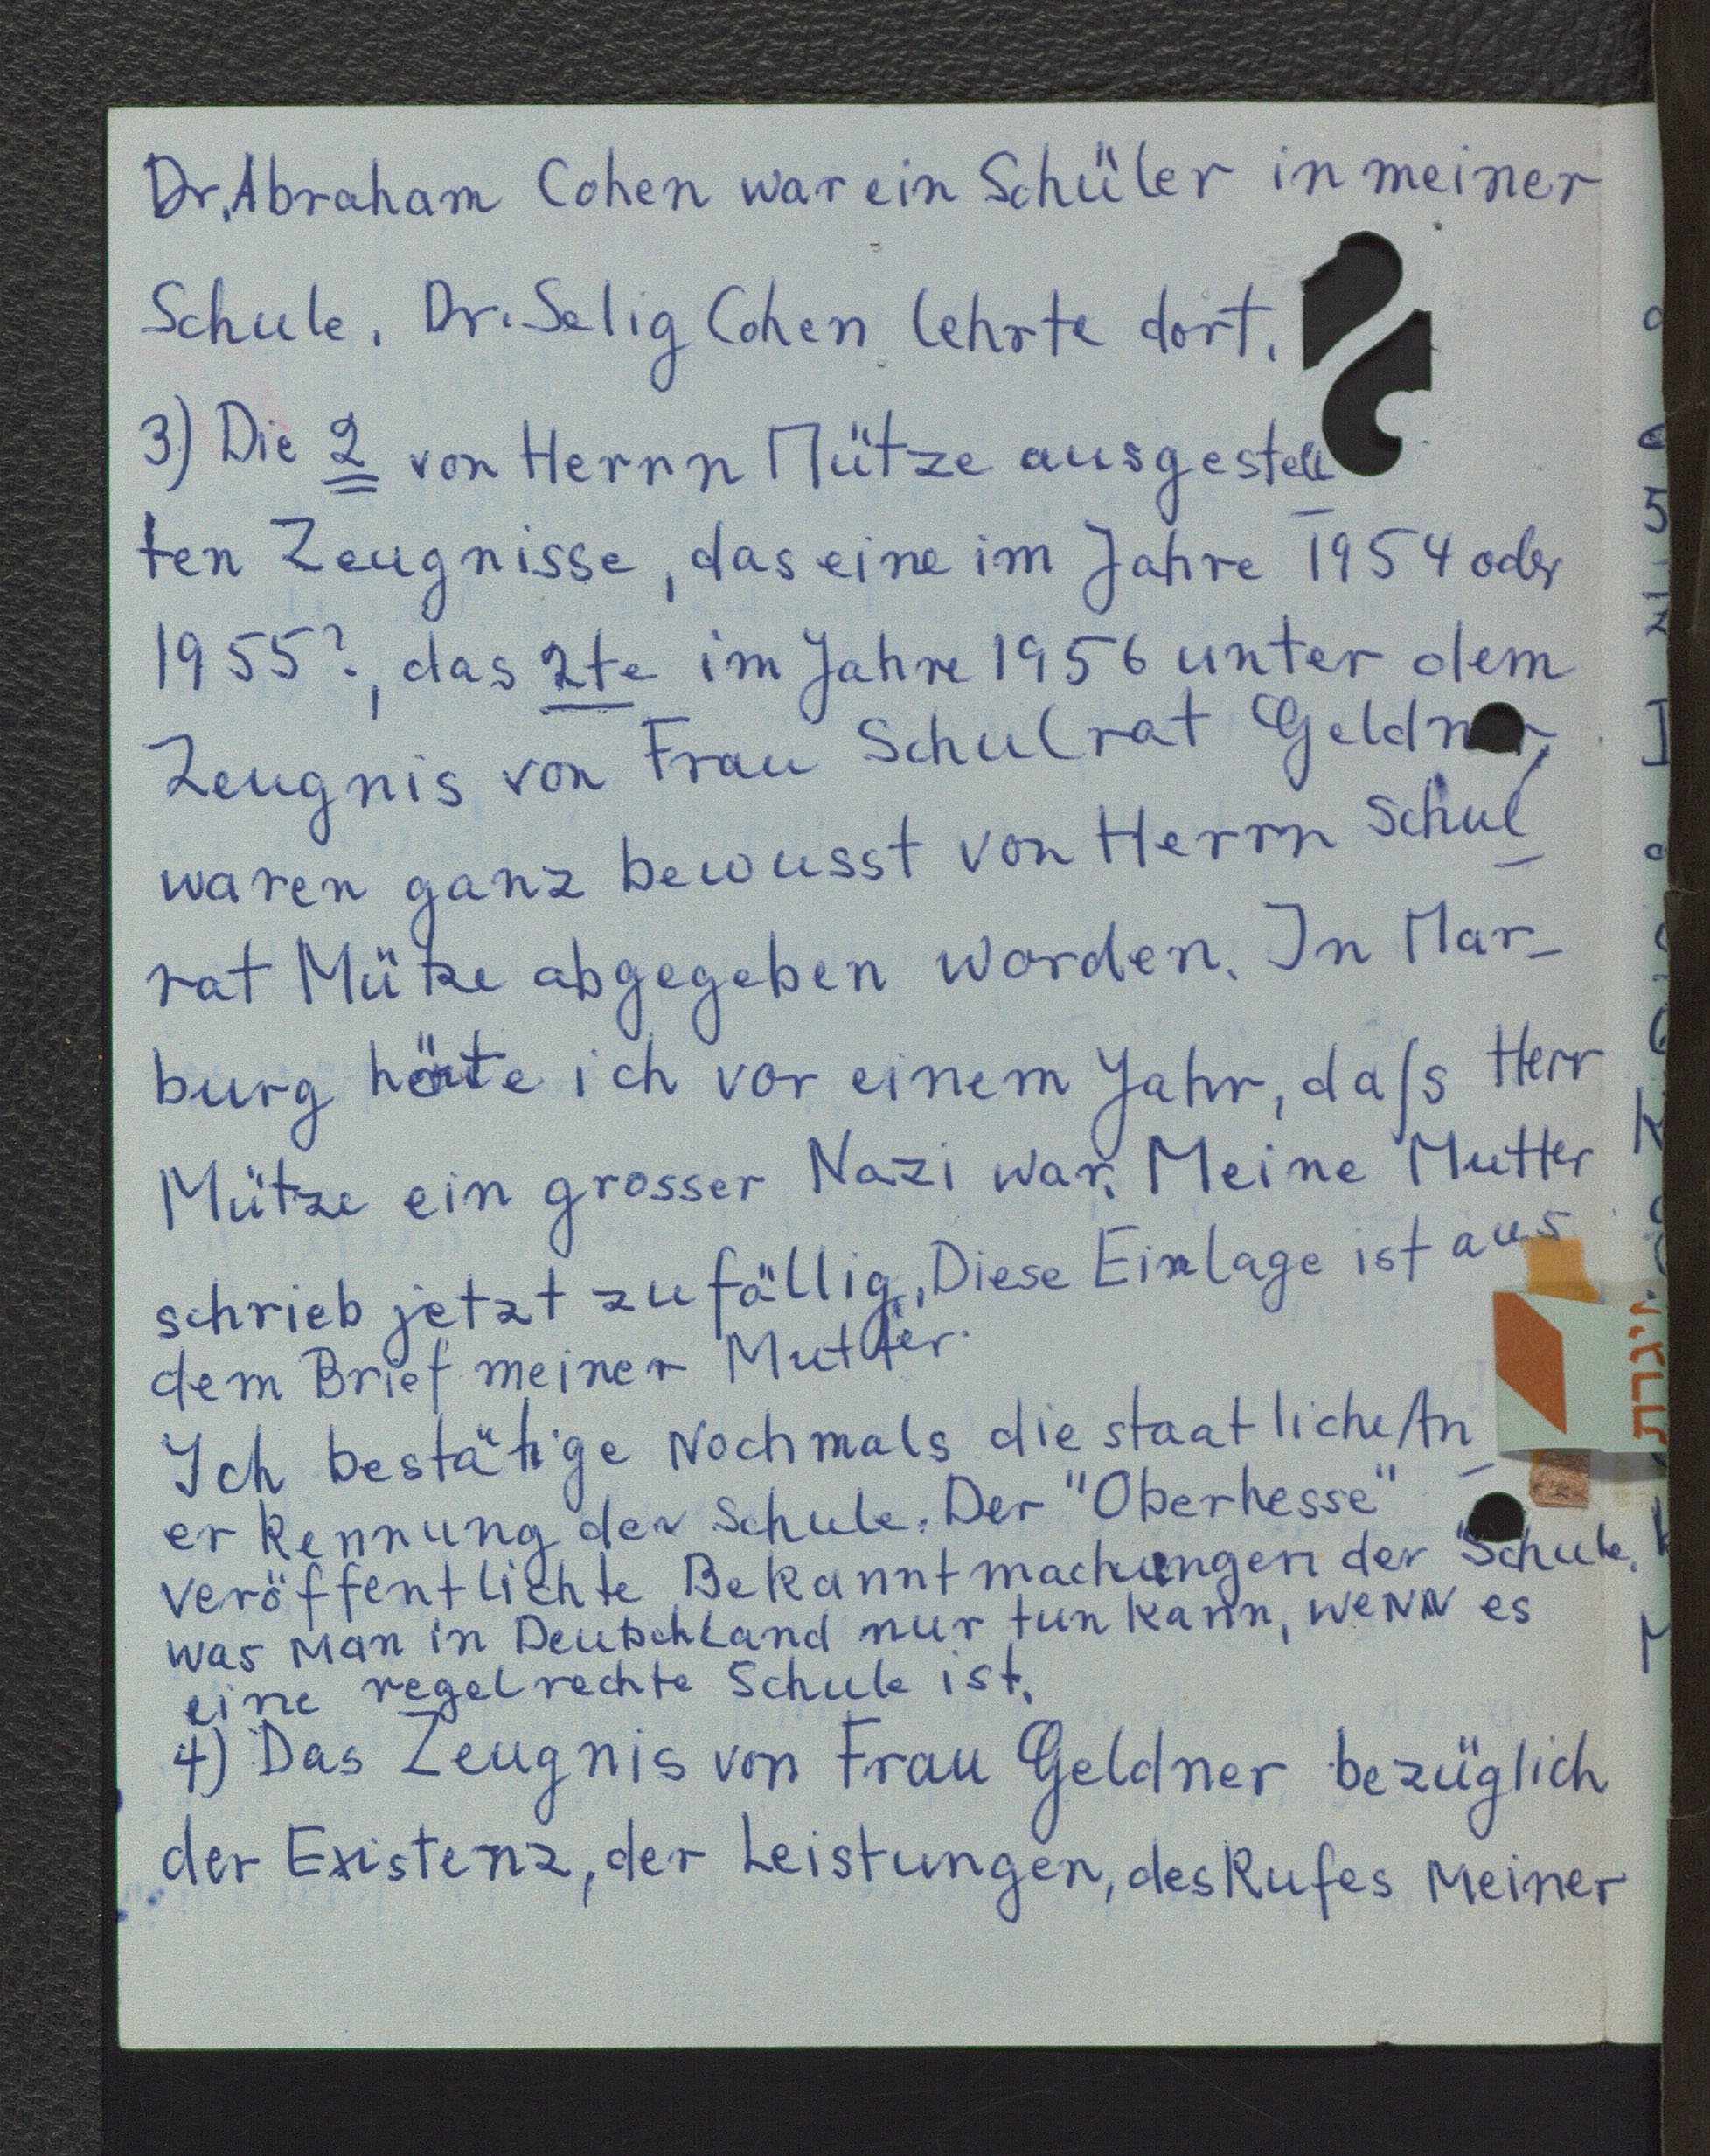 Dr. Abraham Cohen war ein Schüler in meiner
Schule. Dr. Selig Cohen lehrte dort.
3) Die 2 von Herrn Mütze ausgestell
ten Zeugnisse, das eine im Jahre 1954 oder
1955?, das 2te im Jahre 1956 unter dem
Zeugnis von Frau Schulrat Geldner,
waren ganz bewusst von Herrn Schul
rat Mütze abgegeben worden. In Mar-
burg hörte ich vor einem Jahr, dass Herr
Mütze ein grosser Nazi war. Meine Mutter
schrieb jetzt zufällig. Diese Einlage ist aus
dem Brief meiner Mutter.
Ich bestätige Nochmals die staatliche An_
erkennung der Schule. Der "Oberhesse"
veröffentlichte Bekanntmachungen der Schule.
was man in Deutschland nur tun kann, wenn es
eine regelrechte Schule ist.
4) Das Zeugnis von Frau Geldner bezüglich
der Existenz, der Leistungen, des Rufes Meiner
איגרת